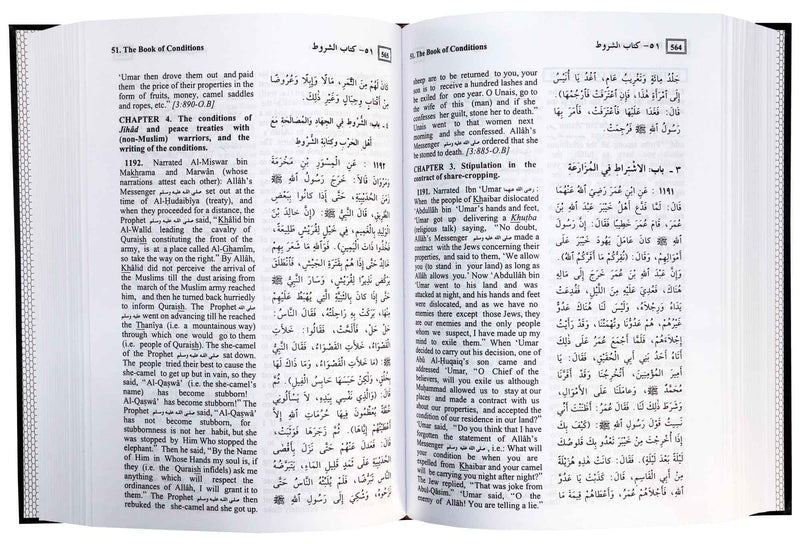 51. The Book of Conditions
٥١- كتاب الشروط
564
sheep are to be returned to you, your
son is to receive a hundred lashes and
be exiled for one year. O Unais, go to
the wife of this (man) and if she
confesses her guilt, stone her to death."
Unais went to that women next
morning and she confessed. Allâh's
Messenger صلى الله عليه وسلم ordered that she
be stoned to death. [3:885-O.B]
CHAPTER 3. Stipulation in the
contract of share-cropping.
1191. Narrated Ibn 'Umar رضي الله عنهما :
When the people of Khaibar dislocated
'Abdullâh bin 'Umar's hands and feet,
'Umar got up delivering a Khutba
(religious talk) saying, "No doubt,
Allâh's Messenger صلى الله عليه وسلم made a
contract with the Jews concerning their
properties, and said to them, 'We allow
you (to stand in your land) as long as
Allâh allows you.' Now 'Abdullâh bin
'Umar went to his land and was
attacked at night, and his hands and feet
were dislocated, and as we have no
enemies there except those Jews, they
are our enemies and the only people
whom we suspect, I have made up my
mind to exile them." When 'Umar
decided to carry out his decision, one of
Abû Al-Huqaiq's son came and
addressed 'Umar, "O Chief of the
believers, will you exile us although
Muhammad allowed us to stay at our
places and made a contract with us
about our properties, and accepted the
condition of our residence in our land?"
'Umar said, "Do you think that I have
forgotten the statement of Allâh's
Messenger صلى الله عليه وسلم i.e.: What will
your condition be when you are
expelled from Khaibar and your camel
will be carrying you night after night?"
The Jew replied, "That was joke from
Abul-Qâsim." 'Umar said, "O the
enemy of Allâh! You are telling a lie."
جَلْدُ مِائَةٍ وَتَغْرِيبُ عَامٍ، اغْدُ يَا أُنَيْسُ
إِلَى امْرَأَةِ هَذَا، فَإِنِ اعْتَرَفَتْ فَارْجُمْهَا).
قَالَ: فَغَدَا عَلَيْهَا فَاعْتَرَفَتْ، فَأَمَرَ بِهَا
رَسُولُ اللهِ ﷺ فَرُجِمَتْ.
٣ - باب: الاشْتِرَاطُ فِي الْمُزَارَعَةِ
١١٩١ : عَنِ ابْنِ عُمَرَ رَضِيَ اللهُ عَنْهُمَا
قَالَ: لَمَّا فَدَعَ أَهْلُ خَيْبَرَ عَبْدَ اللهِ بْنَ
عُمَرَ، قَامَ عُمَرُ خَطِيبًا فَقَالَ: إِنَّ رَسُولَ
اللهِ ﷺ كَانَ عَامَلَ يَهُودَ خَيْبَرَ عَلَى
أَمْوَالِهِمْ، وَقَالَ: (نُقِرُّكُمْ مَا أَقَرَّكُمُ اللهُ).
وَإِنَّ عَبْدَ اللهِ بْنَ عُمَرَ خَرَجَ إِلَى مَالِهِ
هُنَاكَ، فَعُدِيَ عَلَيْهِ مِنَ اللَّيْلِ، فَفُدِعَتْ
يَدَاهُ وَرِجْلَاهُ، وَلَيْسَ لَنَا هُنَاكَ عَدُوٌّ
غَيْرَهُمْ، هُمْ عَدُوُّنَا وَتُهْمَتُنَا، وَقَدْ رَأَيْتُ
إِجْلَاءَهُمْ، فَلَمَّا أَجْمَعَ عُمَرُ عَلَى ذٰلِكَ
أَتَاهُ أَحَدُ بَنِي أَبِي الْحُقَيْقِ، فَقَالَ: يَا
أَمِيرَ الْمُؤْمِنِينَ، أَتُخْرِجُنَا وَقَدْ أَقَرَّنَا
مُحَمَّدٌ ﷺ، وَعَامَلَنَا عَلَى الْأَمْوَالِ،
وَشَرَطَ ذٰلِكَ لَنَا. فَقَالَ عُمَرُ: أَظَنَنْتَ أَنِّي
نَسِيتُ قَوْلَ رَسُولِ اللهِ ﷺ: (كَيْفَ بِكَ
إِذَا أُخْرِجْتَ مِنْ خَيْبَرَ تَعْدُو بِكَ قَلُوصُكَ
لَيْلَةً بَعْدَ لَيْلَةٍ). فَقَالَ: كَانَتْ هذِهِ هُزَيْلَةً
مِنْ أَبِي الْقَاسِمِ، قَالَ: كَذَبْتَ يَا عَدُوَّ
اللهِ، فَأَجْلَاهُمْ عُمَرُ، وَأَعْطَاهُمْ قِيمَةَ مَا
51. The Book of Conditions
٥١- كتاب الشروط
565
'Umar then drove them out and paid
them the price of their properties in the
form of fruits, money, camel saddles
and ropes, etc." [3:890-O.B]
CHAPTER 4. The conditions of
Jihâd and peace treaties with
(non-Muslim) warriors, and the
writing of the conditions.
1192. Narrated Al-Miswar bin
Makhrama and Marwân (whose
narrations attest each other): Allâh's
Messenger صلى الله عليه وسلم set out at the
time of Al-Hudaibîya (treaty), and
when they proceeded for a distance, the
Prophet صلى الله عليه وسلم said, "Khâlid bin
Al-Walîd leading the cavalry of
Quraish constituting the front of the
army, is at a place called Al-Ghamîm,
so take the way on the right." By Allâh,
Khâlid did not perceive the arrival of
the Muslims till the dust arising from
the march of the Muslim army reached
him, and then he turned back hurriedly
to inform Quraish. The Prophet صلى الله
عليه وسلم went on advancing till he reached
the Thaniya (i.e. a mountainous way)
through which one would go to them
(i.e. people of Quraish). The she-camel
of the Prophet صلى الله عليه وسلم sat down.
The people tried their best to cause the
she-camel to get up but in vain, so they
said, "Al-Qaswâ' (i.e. the she-camel's
name) has become stubborn!
Al-Qaswâ' has become stubborn!" The
Prophet صلى الله عليه وسلم said, "Al-Qaswâ'
has not become stubborn, for
stubbornness is not her habit, but she
was stopped by Him Who stopped the
elephant." Then he said, "By the Name
of Him in Whose Hands my soul is, if
they (i.e. the Quraish infidels) ask me
anything which will respect the
ordinances of Allâh, I will grant it to
them." The Prophet صلى الله عليه وسلم then
rebuked the she-camel and she got up.
كَانَ لَهُمْ مِنَ الثَّمَرِ، مَالًا وَإِبِلًا وَعُرُوضًا
مِنْ أَقْتَابٍ وَحِبَالٍ وَغَيْرِ ذٰلِكَ.
٤ - باب: الشُّرُوطُ فِي الْجِهَادِ وَالْمُصَالَحَةِ مَعَ
أَهْلِ الْحَرْبِ وَكِتَابَةِ الشُّرُوطِ
١١٩٢ : عَنِ الْمِسْوَرِ بْنِ مَخْرَمَةَ
وَمَرْوَانَ قَالَا: خَرَجَ رَسُولُ اللهِ ﷺ
زَمَنَ الْحُدَيْبِيَةِ، حَتَّى إِذَا كَانُوا بِبَعْضِ
الطَّرِيقِ، قَالَ النَّبِيُّ ﷺ: (إِنَّ خَالِدَ بْنَ
الْوَلِيدِ بِالْغَمِيمِ، فِي خَيْلٍ لِقُرَيْشٍ طَلِيعَةً،
فَخُذُوا ذَاتَ الْيَمِينِ). فَوَاللهِ مَا شَعَرَ بِهِمْ
خَالِدٌ حَتَّى إِذَا هُمْ بِقَتَرَةِ الْجَيْشِ، فَانْطَلَقَ
يَرْكُضُ نَذِيرًا لِقُرَيْشٍ، وَسَارَ النَّبِيُّ ﷺ
حَتَّى إِذَا كَانَ بِالثَّنِيَّةِ الَّتِي يُهْبَطُ عَلَيْهِمْ
مِنْهَا، بَرَكَتْ بِهِ رَاحِلَتُهُ، فَقَالَ النَّاسُ:
حَلْ حَلْ، فَأَلَحَّتْ، فَقَالُوا: خَلَأَتِ
الْقَصْوَاءُ، خَلَأَتِ الْقَصْوَاءُ، فَقَالَ النَّبِيُّ
ﷺ: (مَا خَلَأَتِ الْقَصْوَاءُ، وَمَا ذَاكَ لَهَا
بِخُلُقٍ، وَلكِنْ حَبَسَهَا حَابِسُ الْفِيلِ). ثُمَّ
قَالَ: (وَالَّذِي نَفْسِي بِيَدِهِ، لَا يَسْأَلُونَنِي
خُطَّةً يُعَظِّمُونَ فِيهَا حُرُمَاتِ اللهِ إِلَّا
أَعْطَيْتُهُمْ إِيَّاهَا). ثُمَّ زَجَرَهَا فَوَثَبَتْ،
قَالَ: فَعَدَلَ عَنْهُمْ حَتَّى نَزَلَ بِأَقْصَى
الْحُدَيْبِيَةِ عَلَى ثَمَدٍ قَلِيلِ الْمَاءِ، يَتَبَرَّضُهُ
النَّاسُ تَبَرُّضًا، فَلَمْ يُلَبِّثْهُ النَّاسُ حَتَّى
نَزَحُوهُ، وَشُكِيَ إِلَى رَسُولِ اللهِ ﷺ